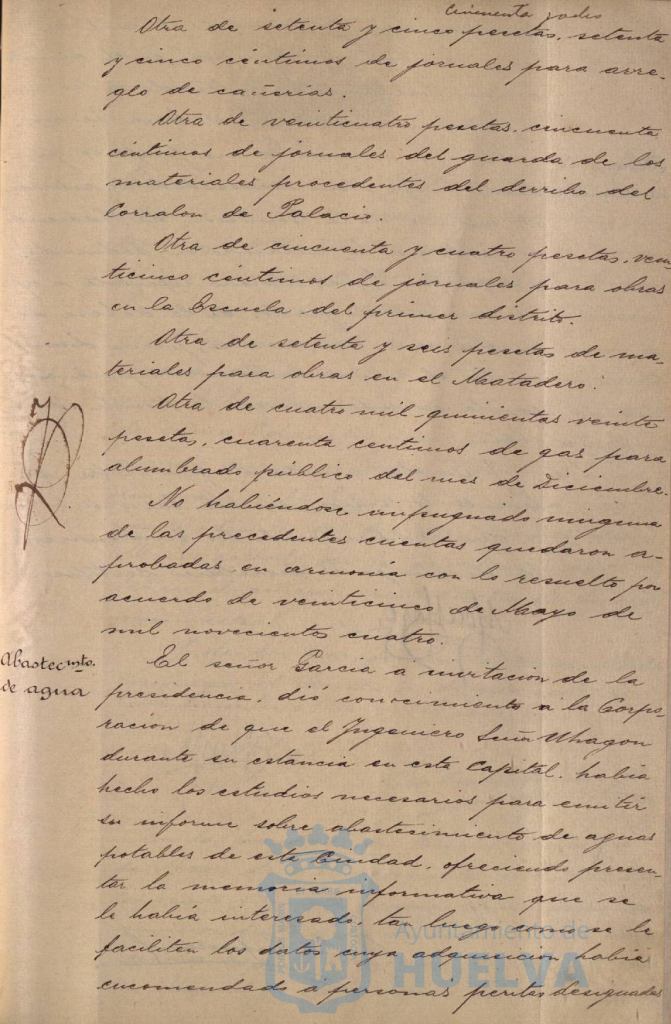 cincuenta y ocho
Otra de setenta y cinco pesetas, setenta
y cinco céntimos de jornales para arre-
glo de cañerias.
Otra de veinticuatro pesetas, cincuenta
céntimos de jornales del guarda de los
materiales procedentes del derribo del
Corralon de Palacio.
Otra de cincuenta y cuatro pesetas, vein-
ticinco céntimos de jornales para obras
en la Escuela del primer distrito.
Otra de setenta y seis pesetas de ma-
teriales para obras en el Matadero.
Otra de cuatro mil quinientas veinte
pesetas, cuarenta centimos de gas para
alumbrado público del mes de Diciembre.
No habiéndose impugnado ninguna
de las precedentes cuentas quedaron a-
probadas en armonía con lo resuelto por
acuerdo de veinticinco de Mayo de
mil novecientos cuatro.
Abastecmto.
de agua
El señor Garcia a invitacion de la
presidencia, dió conocimiento á la Corpo
racion de que el Ingeniero Señor Uhagon
durante su estancia en esta Capital, habia
hecho los estudios necesarios para emitir
su informe sobre abastecimiento de aguas
potables de esta Ciudad, ofreciendo presen-
tar la memoria informativa que se
le había interesado, tan luego como se le
faciliten los datos cuya adquisicion habia
encomendado á personas peritas designadas
Ayuntamiento de
HUELVA